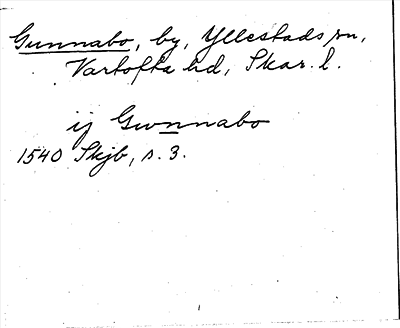 Gunnabo, by, Yllestads sn,
Vartofta hd, Skar. l.
ij Gwnnabo
1540 Skjb, s. 3.